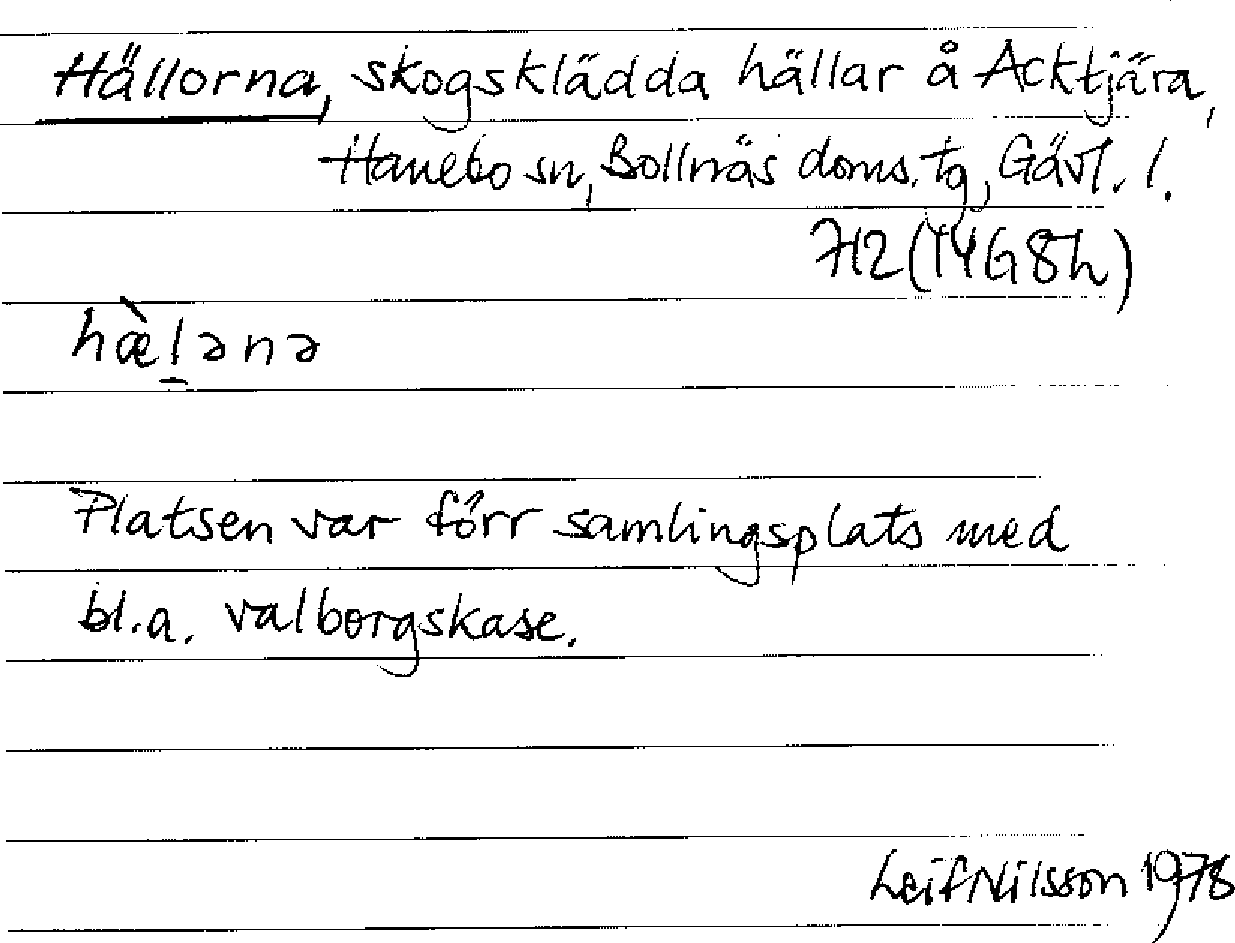 Hällorna, skogsklädda hällar å Acktjära,
Hanebo sn, Bollnäs doms. tg, Gävl. l.
712(14G8h)
hæ̀l̠ənə
Platsen var förr samlingsplats med
bl.a. valborgskase.
Leif Nilsson 1978